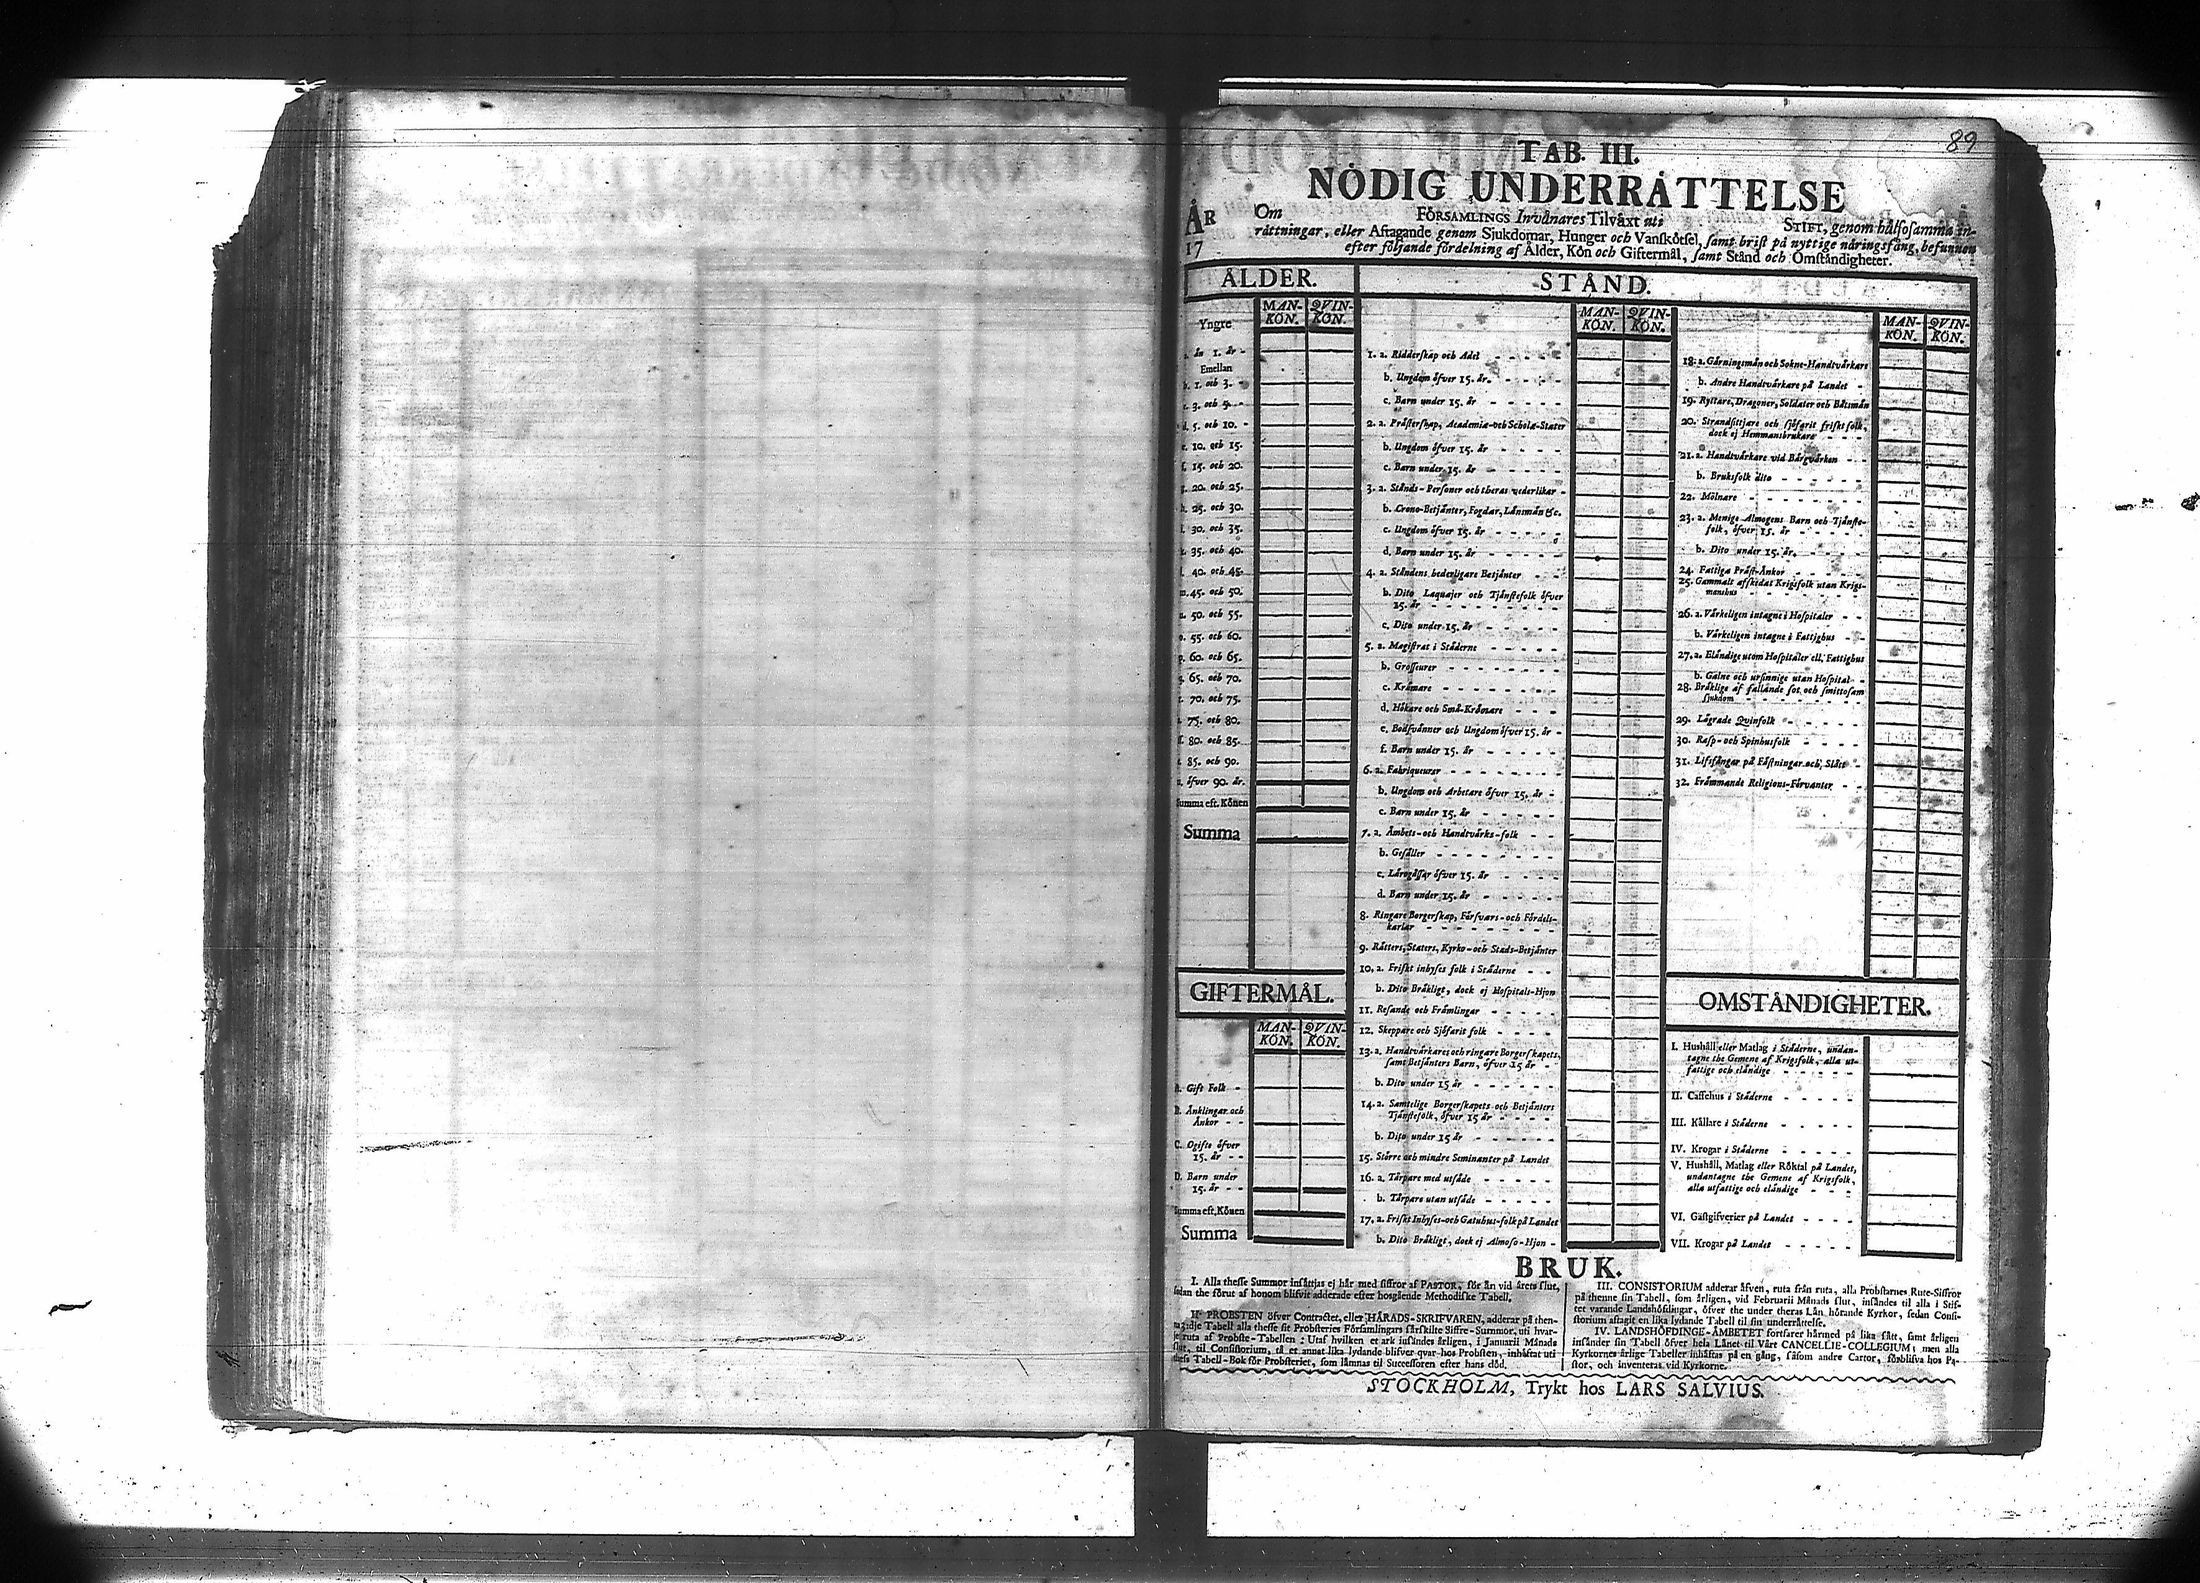 89
TAB. III.
NÖDIG UNDERRÅTTELSE
ÅR
17
Om FÖRSAMLINGS Invånares Tilvåxt uti STIFT, genom hålsosamma in-
råttningar, eller Aftagande genom Sjukdomar, Hunger och Vanskötsel, samt brist på nyttige nåringsfång, befunnen
efter följande fördelning af Ålder, Kön och Giftermål, samt Stånd och Omståndigheter.
ÅLDER.
MAN-KÖN. QVIN-KÖN.
Yngre
ån 1. år -
Emellan
b. 1. och 3. -
c. 3. och 5. -
d. 5. och 10. -
e. 10. och 15.
f. 15. och 20.
g. 20. och 25.
h. 25. och 30.
i. 30. och 35.
k. 35. och 40.
l. 40. och 45.
m. 45. och 50.
n. 50. och 55.
o. 55. och 60.
p. 60. och 65.
q. 65. och 70.
r. 70. och 75.
s. 75. och 80.
80. och 85.
t. 85. och 90.
u. öfver 90. år.
Summa eft. Könen
Summa
GIFTERMÅL.
MAN-KÖN. QVIN-KÖN.
A. Gift Folk -
B. Ånklingar och
Ånkor - -
C. Ogifte öfver
15. år - -
D. Barn under
15. år - -
Summa eft. Könen
Summa
STÅND.
MAN-KÖN. QVIN-KÖN.
1. a. Ridderskap och Adel - - - -
b. Ungdom öfver 15. år. - - - -
c. Barn under 15. år - - - -
2. a. Pråsterskap, Academiæ-och Scholæ-Stater
b. Ungdom öfver 15. år - - - -
c. Barn under 15. år - - - -
3. a. Stånds-Personer och theras vederlikar -
b. Crono-Betjånter, Fogdar, Lånsmån &c.
c. Ungdom öfver 15. år - - - -
d. Barn under 15. år - - - -
4. a. Ståndens hederligare Betjånter - -
b. Dito Laquajer och Tjånstefolk öfver
15. år - - - - - - -
c. Dito under 15. år - - - -
5. a. Magistrat i Ståderne - - - -
b. Grosseurer - - - - - -
c. Kråmare - - - - - -
d. Hökare och Små-Kråmare - - -
e. Bodsvånner och Ungdom öfver 15. år -
f. Barn under 15. år - - - -
6. a. Fabriqueurer - - - - - -
b. Ungdom och Arbetare öfver 15. år -
c. Barn under 15. år - - - -
7. a. Åmbets-och Handtvårks-folk - -
b. Gesåller - - - - - -
c. Lårogåssar öfver 15. år - - - -
d. Barn under 15. år - - - -
8. Ringare Borgerskap, Försvars-och Fördels-
karlar - - - - - -
9. Råtters, Staters, Kyrko-och Stads-Betjånter
10. a. Friskt inhyses folk i Ståderne - -
b. Dito Bråkligt, dock ej Hospitals-Hjon
11. Resande och Fråmlingar - - - -
12. Skeppare och Sjöfarit folk - - - -
13. a. Handtvårkares och ringare Borgerskapets,
samt Betjånters Barn, öfver 15 år - -
b. Dito under 15 år - - - -
14. a. Samtelige Borgerskapets och Betjånters
Tjånstefolk, öfver 15 år - - - -
b. Dito under 15 år - - - -
15. Större och mindre Seminanter på Landet
16. a. Tårpare med utsåde - - - -
b. Tårpare utan utsåde - - - -
17. a. Friskt Inhyses-och Gatuhus-folk på Landet
b. Dito Bråkligt, dock ej Almoso-Hjon -
MAN-KÖN. QVIN-KÖN.
18. a. Gårningsmån och Sokne-Handtvårkare
b. Andre Handtvårkare på Landet -
19. Ryttare, Dragoner, Soldater och Båtsmån
20. Strandsittjare och sjöfarit friskt folk,
dock ej Hemmansbrukare - - - -
21. a. Handtvårkare vid Bårgvårken - -
b. Bruksfolk dito - - - - -
22. Mölnare - - - - - -
23. a. Menige Almogens Barn och Tjånste-
folk, öfver 15. år - - - -
b. Dito under 15. år. - - - -
24. Fattiga Pråst-Ånkor - - - -
25. Gammalt afskedat Krigsfolk utan Krigs-
manshus - - - - - -
26. a. Vårkeligen intagne i Hospitaler - -
b. Vårkeligen intagne i Fattighus - -
27. a. Elåndige utom Hospitaler ell. Fattighus
b. Galne och ursinnige utan Hospital -
28. Bråklige af fallande sot och smittosam
sjukdom - - - - - -
29. Lågrade Qvinfolk - - - - -
30. Rasp-och Spinhusfolk - - - -
31. Lifsfångar på Fåstningar och Slått -
32. Fråmmande Religions-Förvanter - -
OMSTÅNDIGHETER.
I. Hushåll eller Matlag i Ståderne, undan-
tagne the Gemene af Krigsfolk, alla ut-
fattige och elåndige - - - - -
II. Caffehus i Ståderne - - - - -
III. Kållare i Ståderne - - - - -
IV. Krogar i Ståderne - - - - -
V. Hushåll, Matlag eller Röktal på Landet,
undantagne the Gemene af Krigsfolk,
alla utfattige och elåndige - - - -
VI. Gåstgifverier på Landet - - - -
VII. Krogar på Landet - - - - -
BRUK.
I. Alla thesse Summor insåttjas ej hår med siffror af PASTOR, för ån vid årets slut,
sedan the förut af honom blifvit adderade efter hosgående Methodiske Tabell.
II. PROBSTEN öfver Contractet, eller HÅRADS-SKRIFVAREN, adderar på then-
na 3:dje Tabell alla thesse sit Probsteries Församlingars sårskilte Siffre-Summor, uti hvar-
je ruta af Probste-Tabellen: Utaf hvilken et ark insåndes årligen, i Januarii Månads
slut, til Consistorium, tå et annat lika lydande blifver qvar hos Probsten, inhåftat uti
thess Tabell-Bok för Probsteriet, som låmnas til Successoren efter hans död.
III. CONSISTORIUM adderar åfven, ruta från ruta, alla Probstarnes Rute-Siffror
på thenne sin Tabell, som årligen, vid Februarii Månads slut, insåndes til alla i Stif-
tet varande Landshöfdingar, öfver the under theras Lån hörande Kyrkor, sedan Consi-
storium aftagit en lika lydande Tabell til sin underråttelse.
IV. LANDSHÖFDINGE-ÅMBETET fortfarer hårmed på lika sått, samt årligen
insånder sin Tabell öfver hela Lånet til Vårt CANCELLIE-COLLEGIUM; men alla
Kyrkornes årlige Tabeller inhåftas på en gång, såsom andre Cartor, förblifva hos Pa-
stor, och inventeras vid Kyrkorne.
STOCKHOLM, Trykt hos LARS SALVIUS.